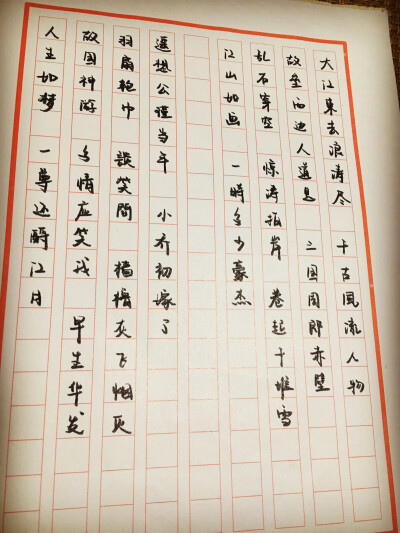 大江東去浪涛尽 千古風流人物
故垒西边人道是 三国周郎赤壁
乱石穿空 惊涛拍岸 卷起千堆雪
江山如画 一時多少豪杰
遥想公瑾当年 小乔初嫁了
羽扇纶巾 談笑間 樯橹灰飞烟灭
故国神游 多情应笑我 早生华发
人生如梦 一尊还酹江月